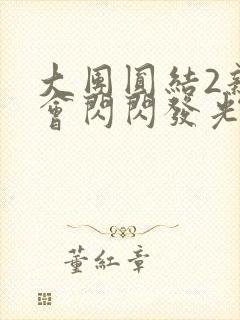 大團圓結2
會閃閃發光
董紅章